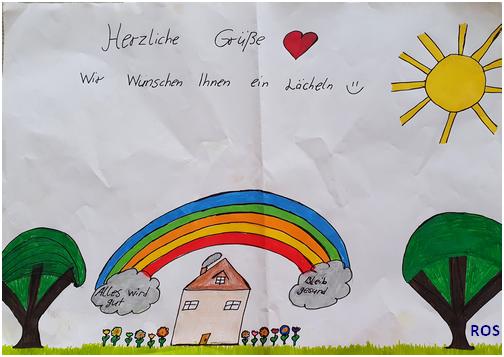 Herzliche Grüße
Wir Wünschen Ihnen ein Lächeln
Alles wird
gut
Bleib
gesund
ROS